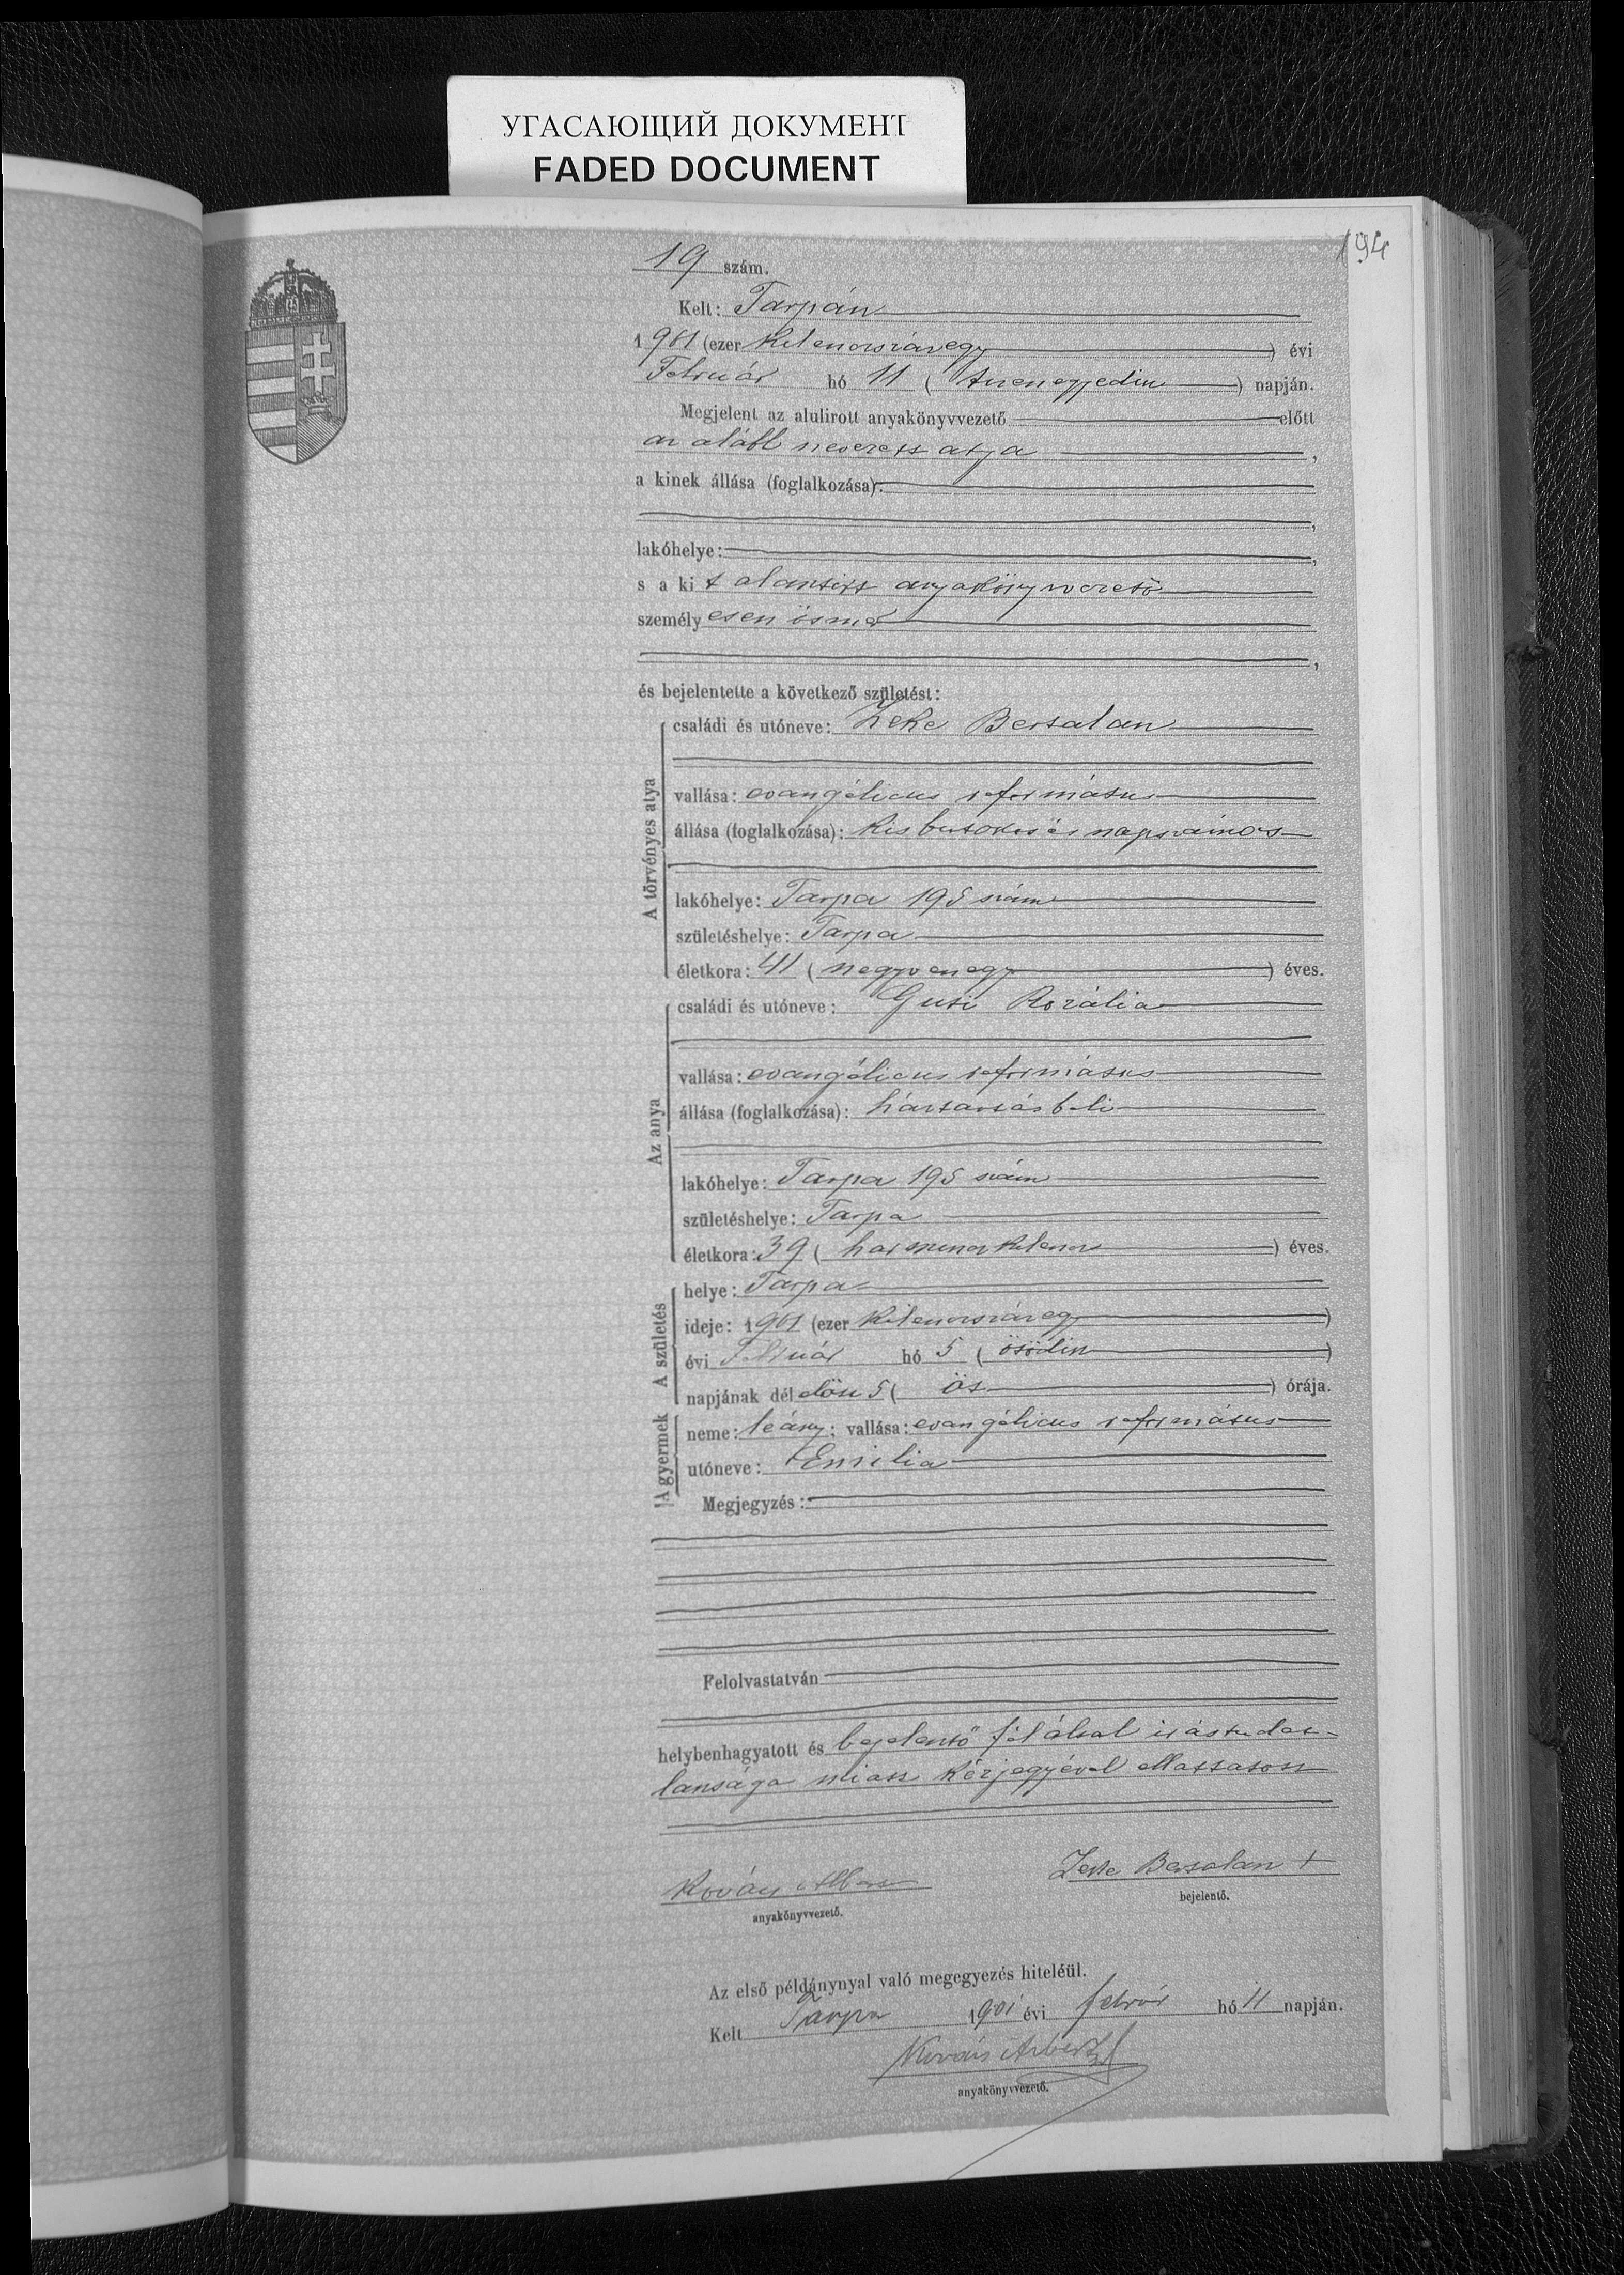 УГАСАЮЩИЙ ДОКУМЕНТ
FADED DOCUMENT
194
19 szám.
Kelt: Tarpán
1901 (ezer kilenczszázegy) évi
Február hó 11 (tizenegyedik) napján.
Megjelent az alulirott anyakönyvvezető előtt
az alább nevezett atya,
a kinek állása (foglalkozása):
lakóhelye:
s a kit alantirt anyakönyvvezető
személyesen ösmer
és bejelentette a következő születést:
A törvényes atya
családi és utóneve: Zeke Bertalan
vallása: evangélicus református
állása (foglalkozása): kisbirtokos és napszámos
lakóhelye: Tarpa 195 szám
születéshelye: Tarpa
életkora: 41 (negyvenegy) éves.
Az anya
családi és utóneve: Guti Rozália
vallása: evangélicus református
állása (foglalkozása): háztartásbeli
lakóhelye: Tarpa 195 szám
születéshelye: Tarpa
életkora: 39 (harmincz kilencz) éves.
A születés
helye: Tarpa
ideje: 1901 (ezer kilenczszázegy)
évi Február hó 5 (ötödik)
napjának délelőtt 5 (öt) órája.
A gyermek
neme: leány; vallása: evangélicus református
utóneve: Emilia
Megjegyzés:
Felolvastatván
helybenhagyatott és bejelentő fél által irástudat-
lansága miatt kézjegyével elláttatott
Kovács Albert
anyakönyvvezető.
Zeke Bertalan +
bejelentő.
Az első példánynyal való megegyezés hiteléül.
Kelt Tarpa 1901 évi február hó 11 napján.
Kovács Albert
anyakönyvvezető.